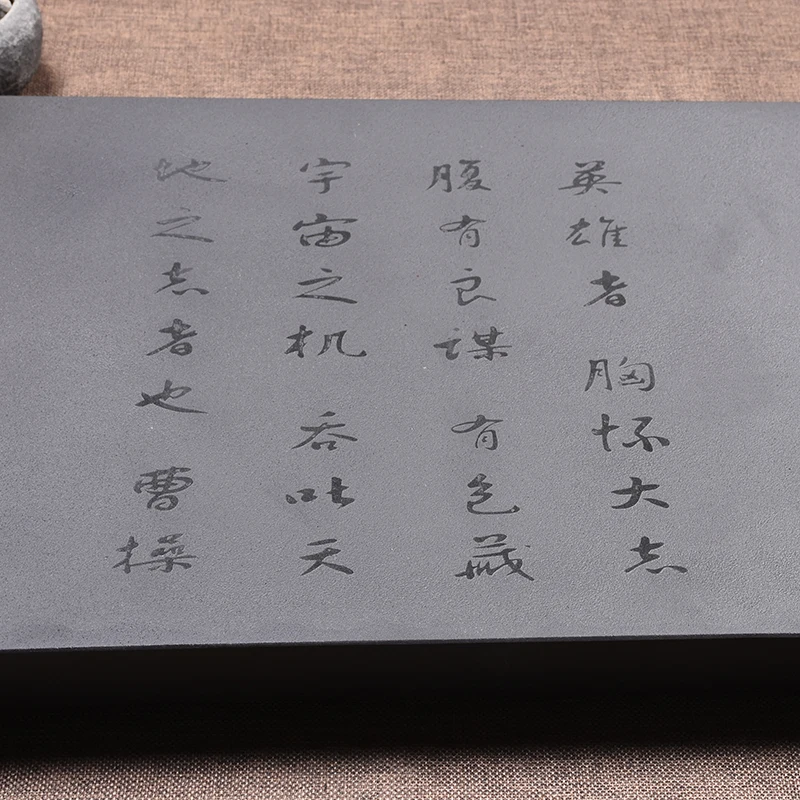 英雄者 胸怀大志
腹有良谋 有包藏
宇宙之机 吞吐天
地之志者也 曹操